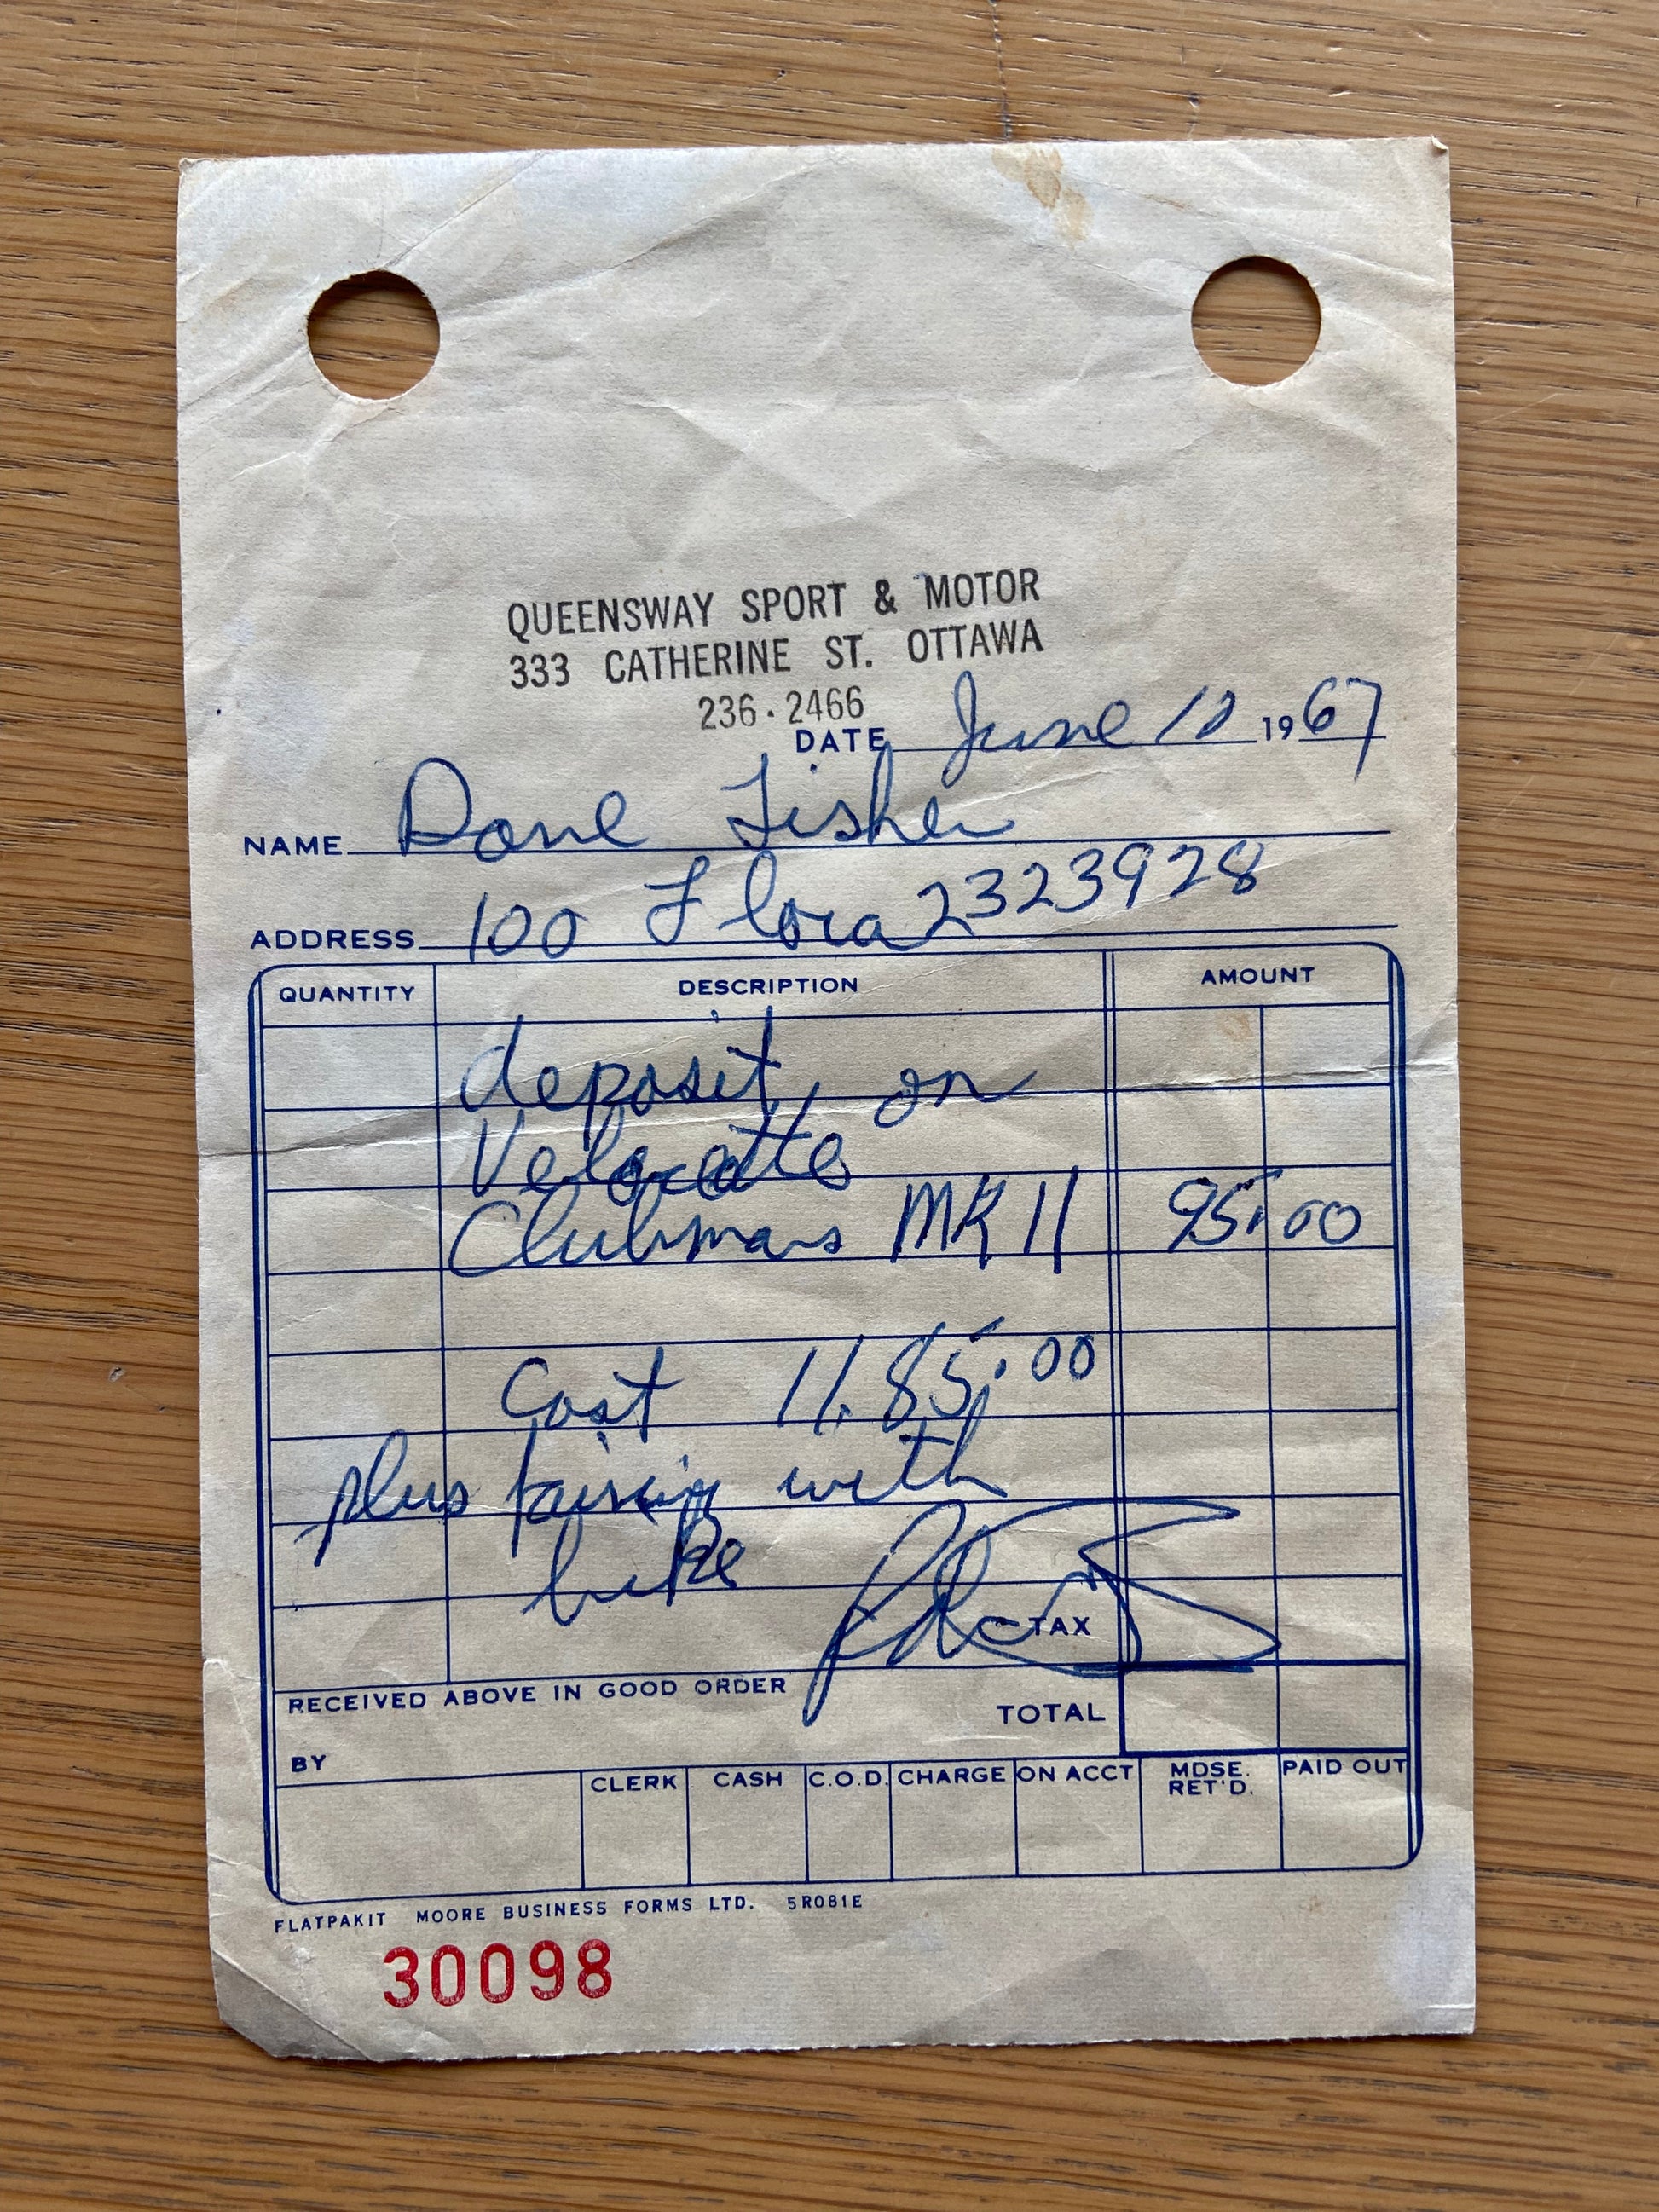 QUEENSWAY SPORT & MOTOR
333 CATHERINE ST. OTTAWA
236·2466
DATE June 12 1967
NAME Dave Fisher
ADDRESS 100 Flora 2323928
QUANTITY DESCRIPTION AMOUNT
deposit on
Velocette
Clubmans MK 11 95.00
Cost 11.85.00
plus fairing with
bike
TAX
RECEIVED ABOVE IN GOOD ORDER
TOTAL
BY
CLERK CASH C.O.D. CHARGE ON ACCT MDSE. RET'D. PAID OUT
FLATPAKIT MOORE BUSINESS FORMS LTD. 5R081E
30098